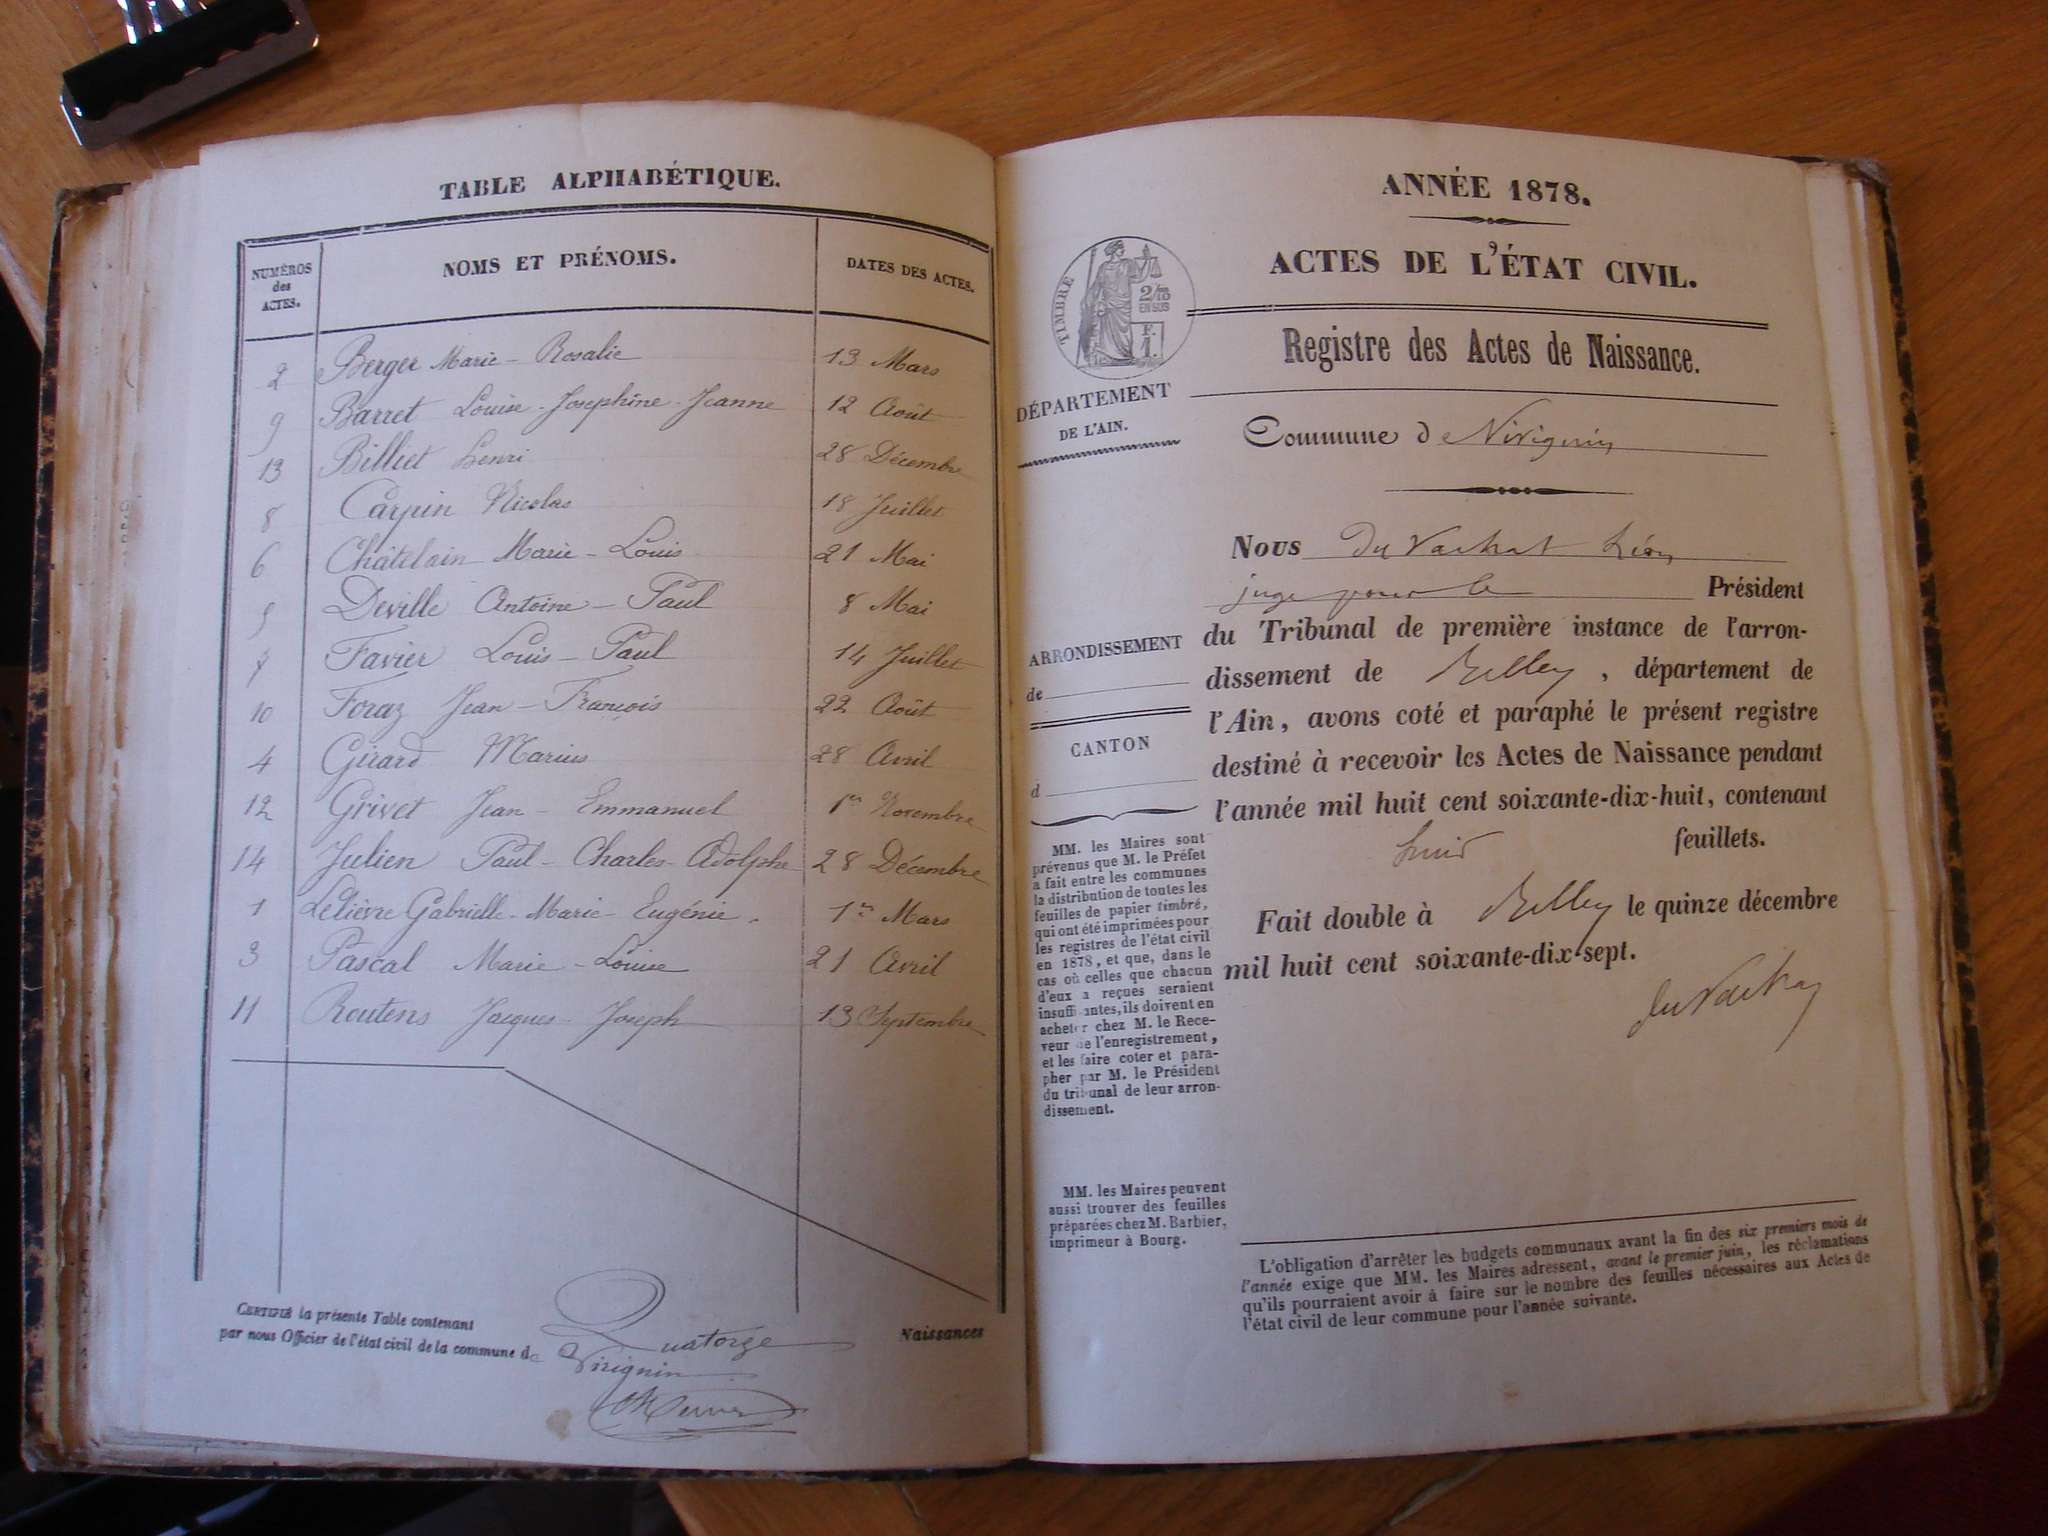 TABLE ALPHABÉTIQUE.
NUMÉROS des ACTES. NOMS ET PRÉNOMS. DATES DES ACTES.
2 Berger Marie-Rosalie 13 Mars
9 Barret Louise-Josephine-Jeanne 12 Août
13 Billiet Henri 28 Décembre
8 Carpin Nicolas 18 Juillet
6 Châtelain Marie-Louis 21 Mai
5 Deville Antoine-Paul 8 Mai
7 Favier Louis-Paul 14 Juillet
10 Foraz Jean-François 22 Août
4 Girard Marius 28 Avril
12 Grivet Jean-Emmanuel 1er Novembre
14 Julien Paul-Charles-Adolphe 28 Décembre
1 Lelièvre Gabrielle-Marie-Eugénie. 1er Mars
3 Pascal Marie-Louise 21 Avril
11 Routens Jacques-Joseph 13 Septembre
CERTIFIÉ la présente Table contenant Quatorze Naissances
par nous Officier de l'état civil de la commune de Virignin
ANNÉE 1878.
ACTES DE L'ÉTAT CIVIL.
TIMBRE
2/10
EN SUS
F.
1.
Registre des Actes de Naissance.
DÉPARTEMENT
DE L'AIN.
Commune de Virignin
Nous Du Vachat Léon
juge pour le Président
du Tribunal de première instance de l'arron-
dissement de Belley, département de
l'Ain, avons coté et paraphé le présent registre
destiné à recevoir les Actes de Naissance pendant
l'année mil huit cent soixante-dix-huit, contenant
huit feuillets.
Fait double à Belley le quinze décembre
mil huit cent soixante-dix-sept.
Du Vachat
ARRONDISSEMENT
de
CANTON
d
MM. les Maires sont
prévenus que M. le Préfet
a fait entre les communes
la distribution de toutes les
feuilles de papier timbré,
qui ont été imprimées pour
les registres de l'état civil
en 1878, et que, dans le
cas où celles que chacun
d'eux a reçues seraient
insuffisantes, ils doivent en
acheter chez M. le Rece-
veur de l'enregistrement,
et les faire coter et para-
pher par M. le Président
du tribunal de leur arron-
dissement.
MM. les Maires peuvent
aussi trouver des feuilles
préparées chez M. Barbier,
imprimeur à Bourg.
L'obligation d'arrêter les budgets communaux avant la fin des six premiers mois de
l'année exige que MM. les Maires adressent, avant le premier juin, les réclamations
qu'ils pourraient avoir à faire sur le nombre des feuilles nécessaires aux Actes de
l'état civil de leur commune pour l'année suivante.